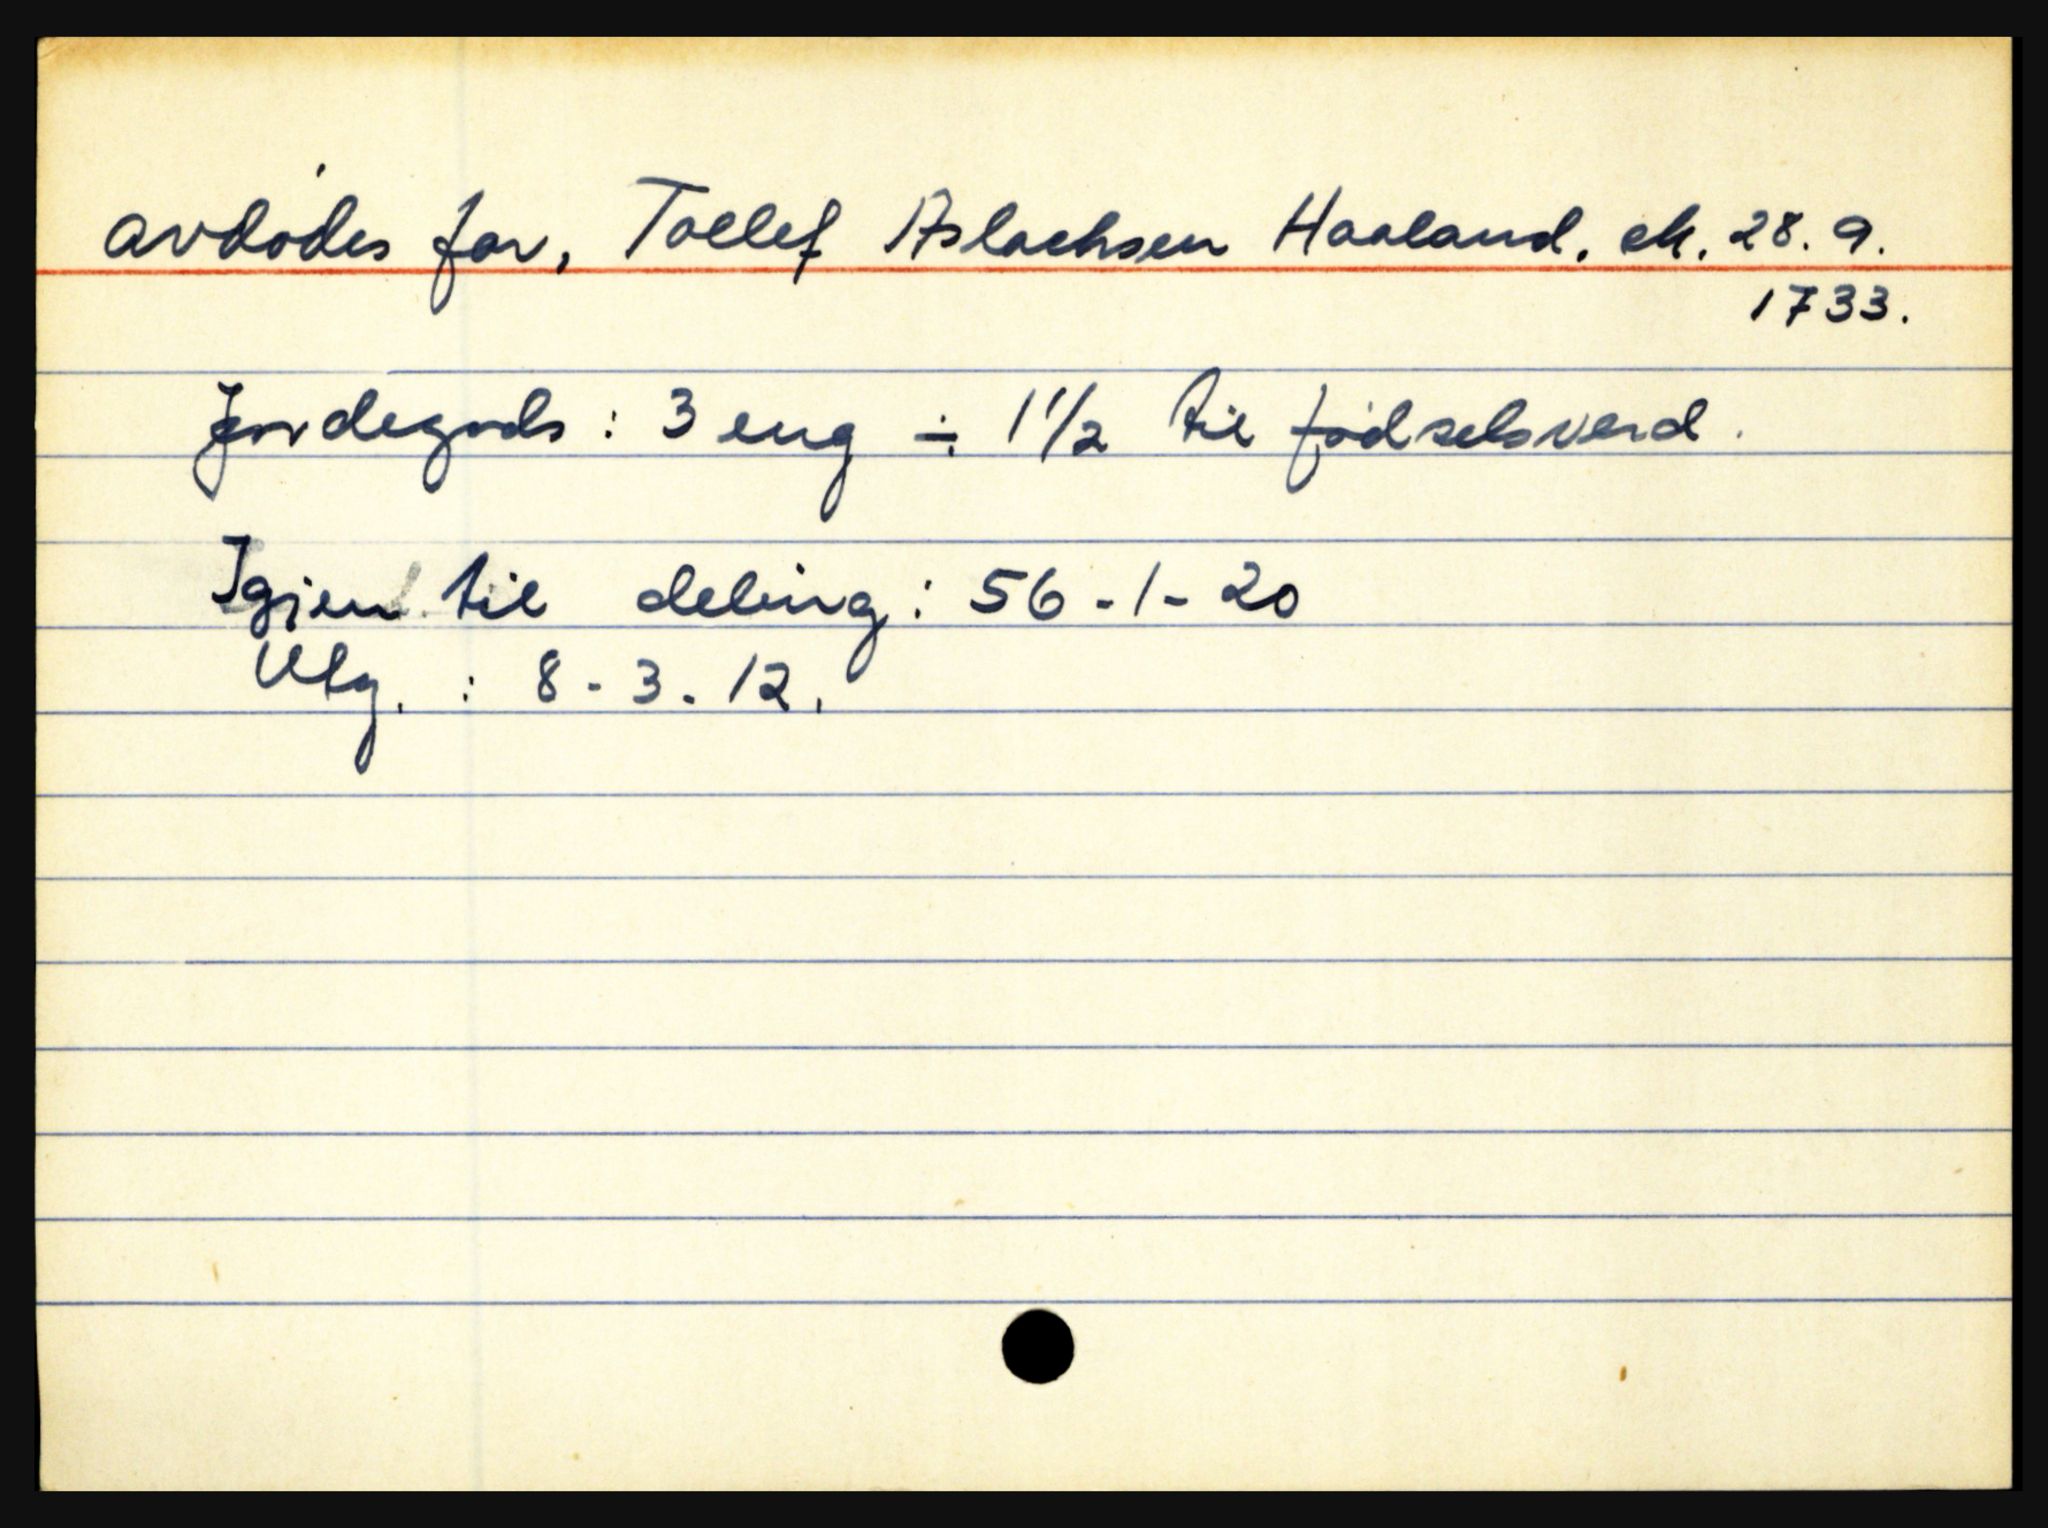 avdødes far, Tollef Aslachsen Haaland, sk. 28.9.
1733.
Jordegods: 3 eng ÷ 1 1/2 til fødselsverd.
Igien til deling: 56-1-20
Utg. : 8-3-12.